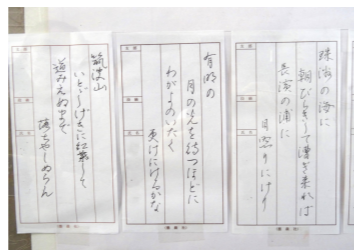 珠洲の海に
朝びらきして漕ぎ来れば
長濱の浦に
月照りにけり
有明の
月の光を待つほどに
わがよのいたく
更けにけるかな
筑波山
いとゞしげきに紅葉して
道みえぬまで
落ちやしぬらん